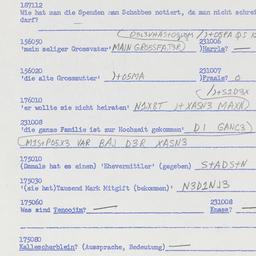 187112
Wie hat man die Spenden am Schabbes notiert, da man nicht schreiben
darf?
156050 231006
'mein seliger Grossvater' MAIN GROSSFAT3R )Harrle? —
156020 231007
'die alte Grossmutter' I+OSMA )Fraale?
176010
'er wollte sie nicht heiraten'
231008
'die ganze Familie ist zur Hochzeit gekommen' DI GANC3
MISPOX3 VAR BAJ D3R XASN3
175010
(Damals hat es einen) 'Ehevermittler' (gegeben) S+ADS+N
175030
'(sie hat)Tausend Mark Mitgift (bekommen)' N3D1NJ3
175060 231008
Was sind Tenoojim? — Knass? —
175080
Kallescherblein? (Aussprache, Bedeutung) —